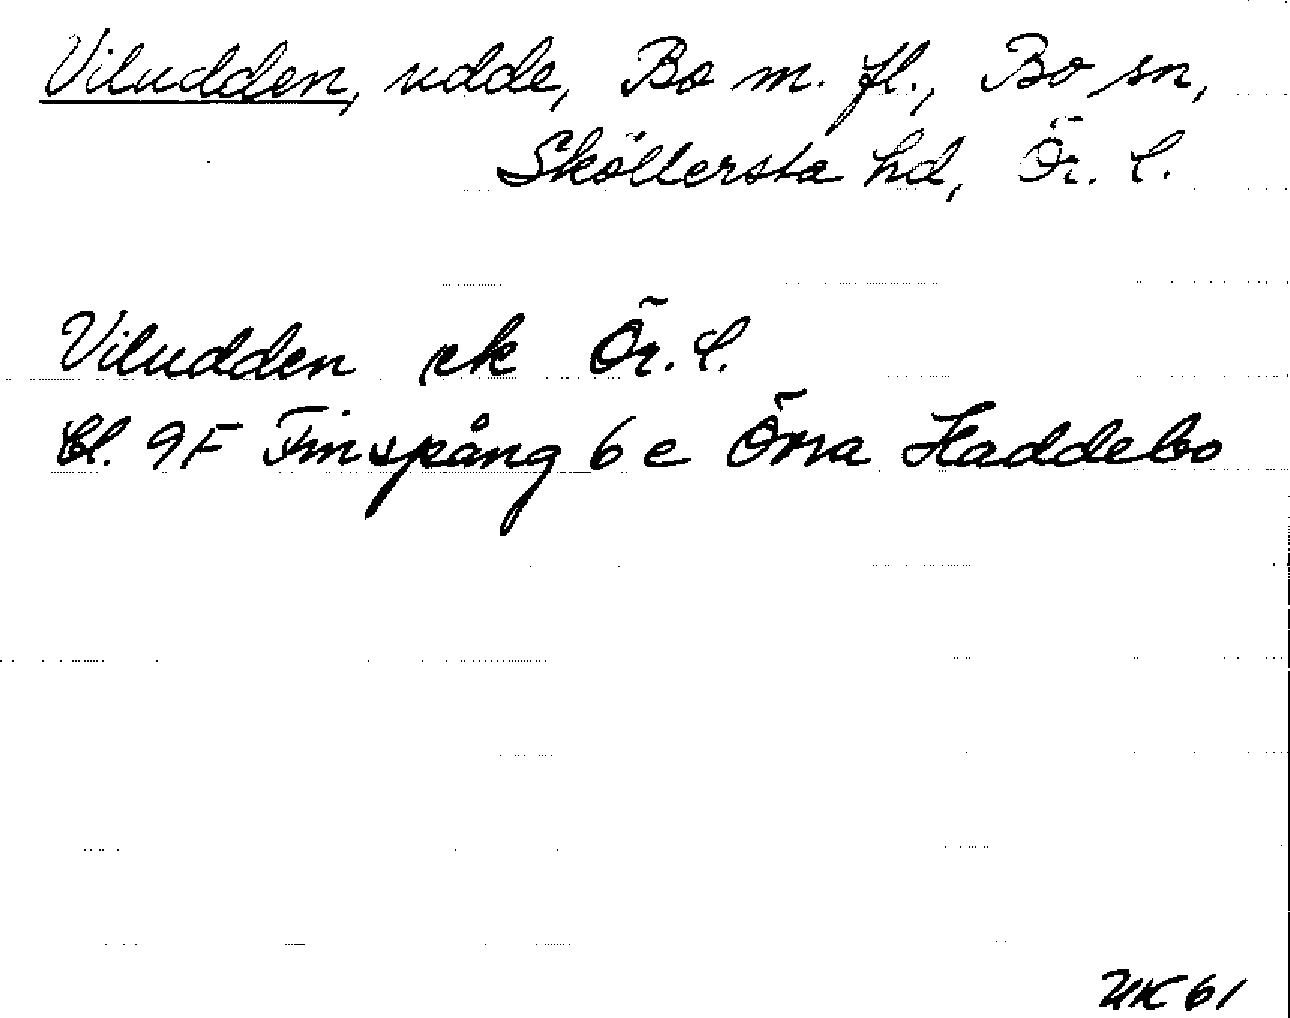 Viludden, udde, Bo m. fl., Bo sn,
Sköllersta hd, Ör. l.
Viludden ek Ör. l.
Bl. 9F Finspång 6 e Östra Haddebo
UK 61